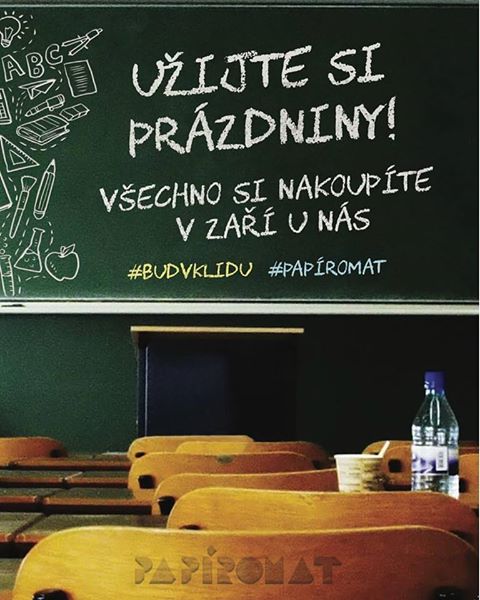 ABC
UŽIJTE SI
PRÁZDNINY!
VŠECHNO SI NAKOUPÍTE
V ZAŘÍ U NÁS
#BUDVKLIDU #PAPÍROMAT
PAPÍROMAT